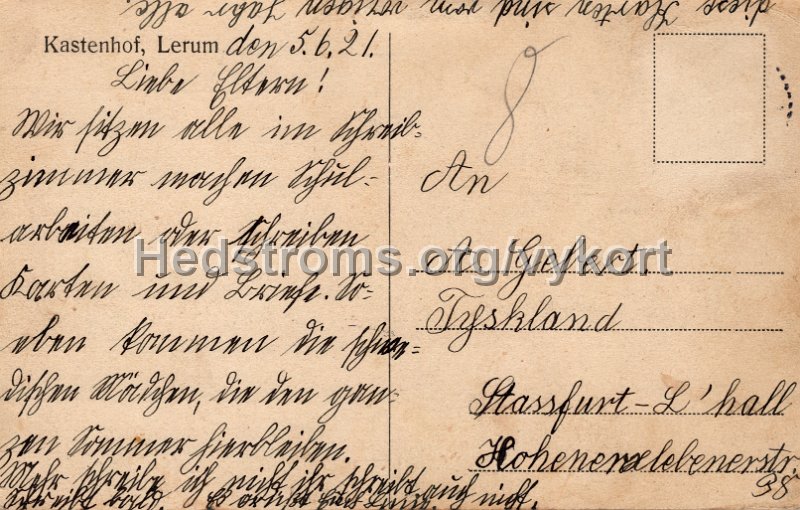 Kastenhof, Lerum den 5.6.21.
Liebe Eltern!
Wir sitzen alle im Schreib-
zimmer machen Schul-
arbeiten oder schreiben
Karten und Briefe. So-
eben kommen die schwe-
dischen Mädchen, die den gan-
zen Sommer hierbleiben.
Mehr schreibe ich nicht ihr schreibt auch nicht.
Schreibt bald. Es grüßt Euch
diese Karten sind vom vorigen Jahr.
8
An
A. Gebert.
Tyskland
Stassfurt-L'hall
Hohenerxlebenerstr.
38
Hedstroms.org/vykort